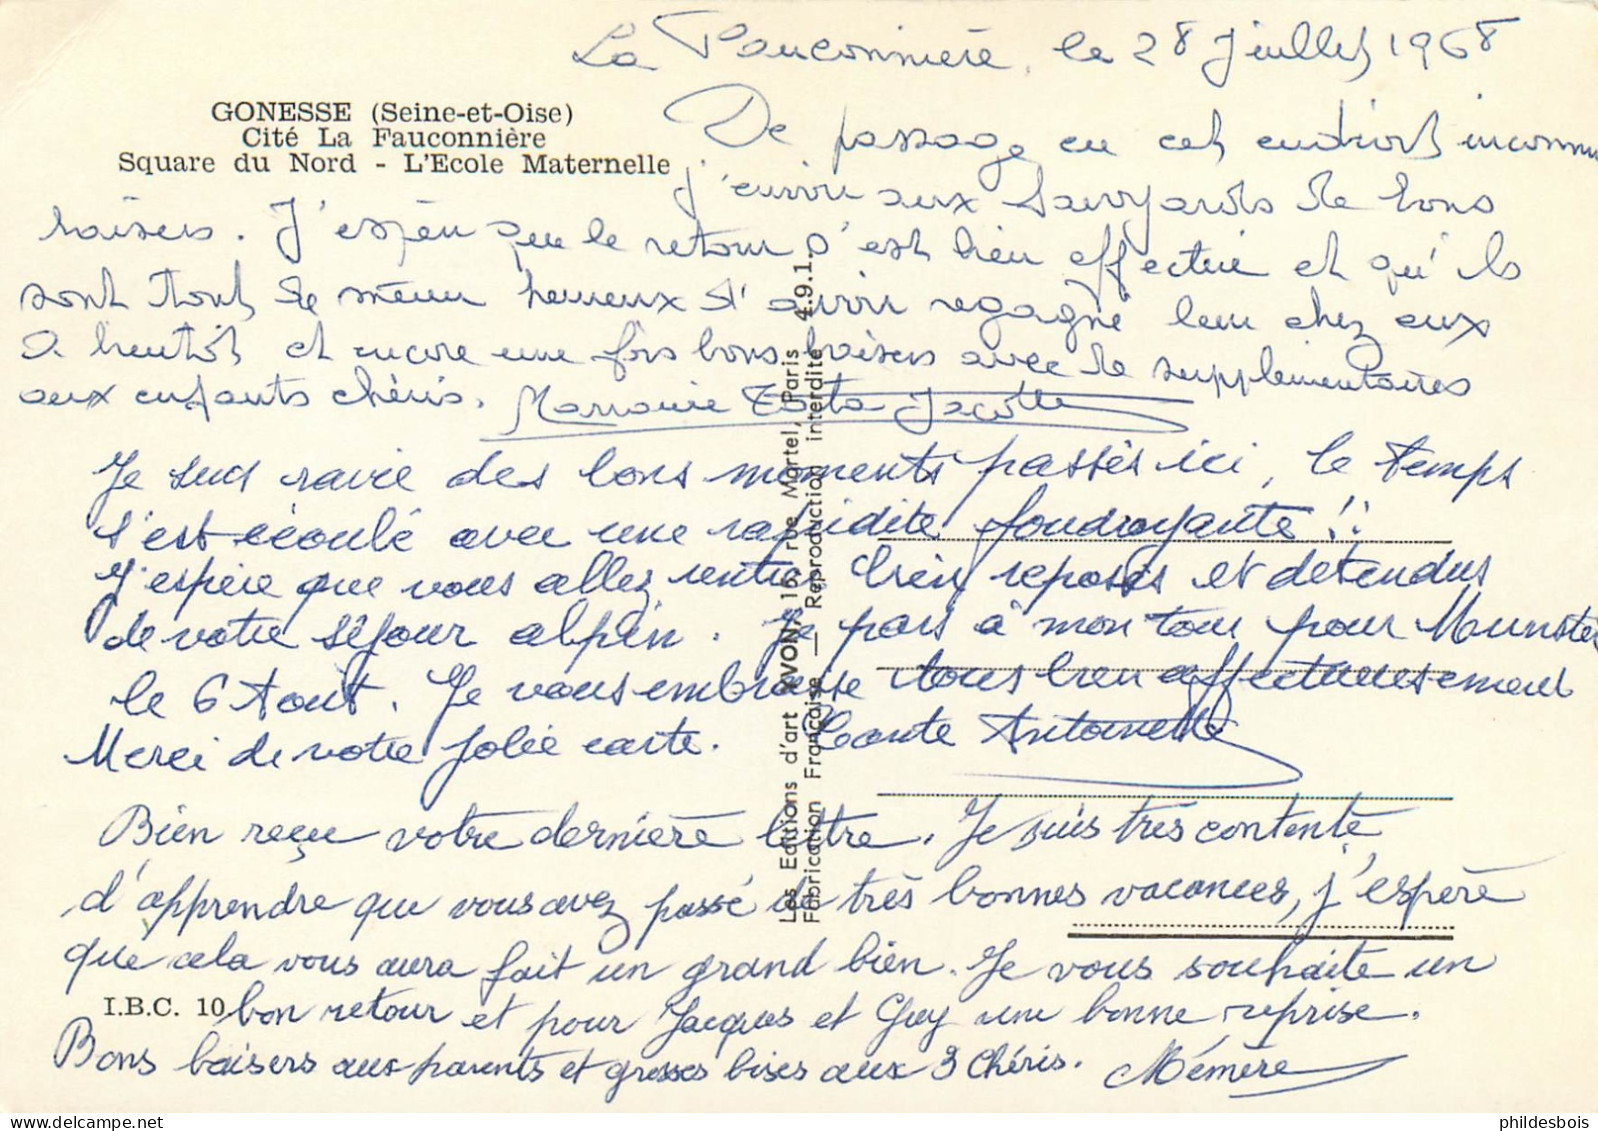 La Fauconnière, le 28 Juillet 1968
GONESSE (Seine-et-Oise)
Cité La Fauconnière
Square du Nord - L'Ecole Maternelle
De passage en cet endroit inconnu
j'envoie aux Savoyards de bons
baisers. J'espère que le retour s'est bien effectué et qu'ils
sont tous de même heureux d'avoir regagné leur chez eux
A bientôt et encore une fois bons baisers avec de supplémentaires
aux enfants chéris. Marraine Tata Jacotte
Je suis ravie des bons moments passés ici, le temps
s'est écoulé avec une rapidité foudroyante !!
J'espère que vous allez rentrer bien reposés et détendus
de votre séjour alpin. Je pars à mon tour pour Munster
le 6 Aout. Je vous embrasse tous bien affectueusement
Merci de votre jolie carte. Tante Antoinette
Bien reçu votre dernière lettre. Je suis très contente
d'apprendre que vous avez passé de très bonnes vacances, j'espère
que cela vous aura fait un grand bien. Je vous souhaite un
I.B.C. 10
bon retour et pour Jacques et Guy une bonne reprise.
Bons baisers aux parents et grosses bises aux 3 Chéris. Mémère
Les Editions d'art YVON, 15, rue Martel, Paris 4.9.1.
Fabrication Française — Reproduction interdite
phildesbois